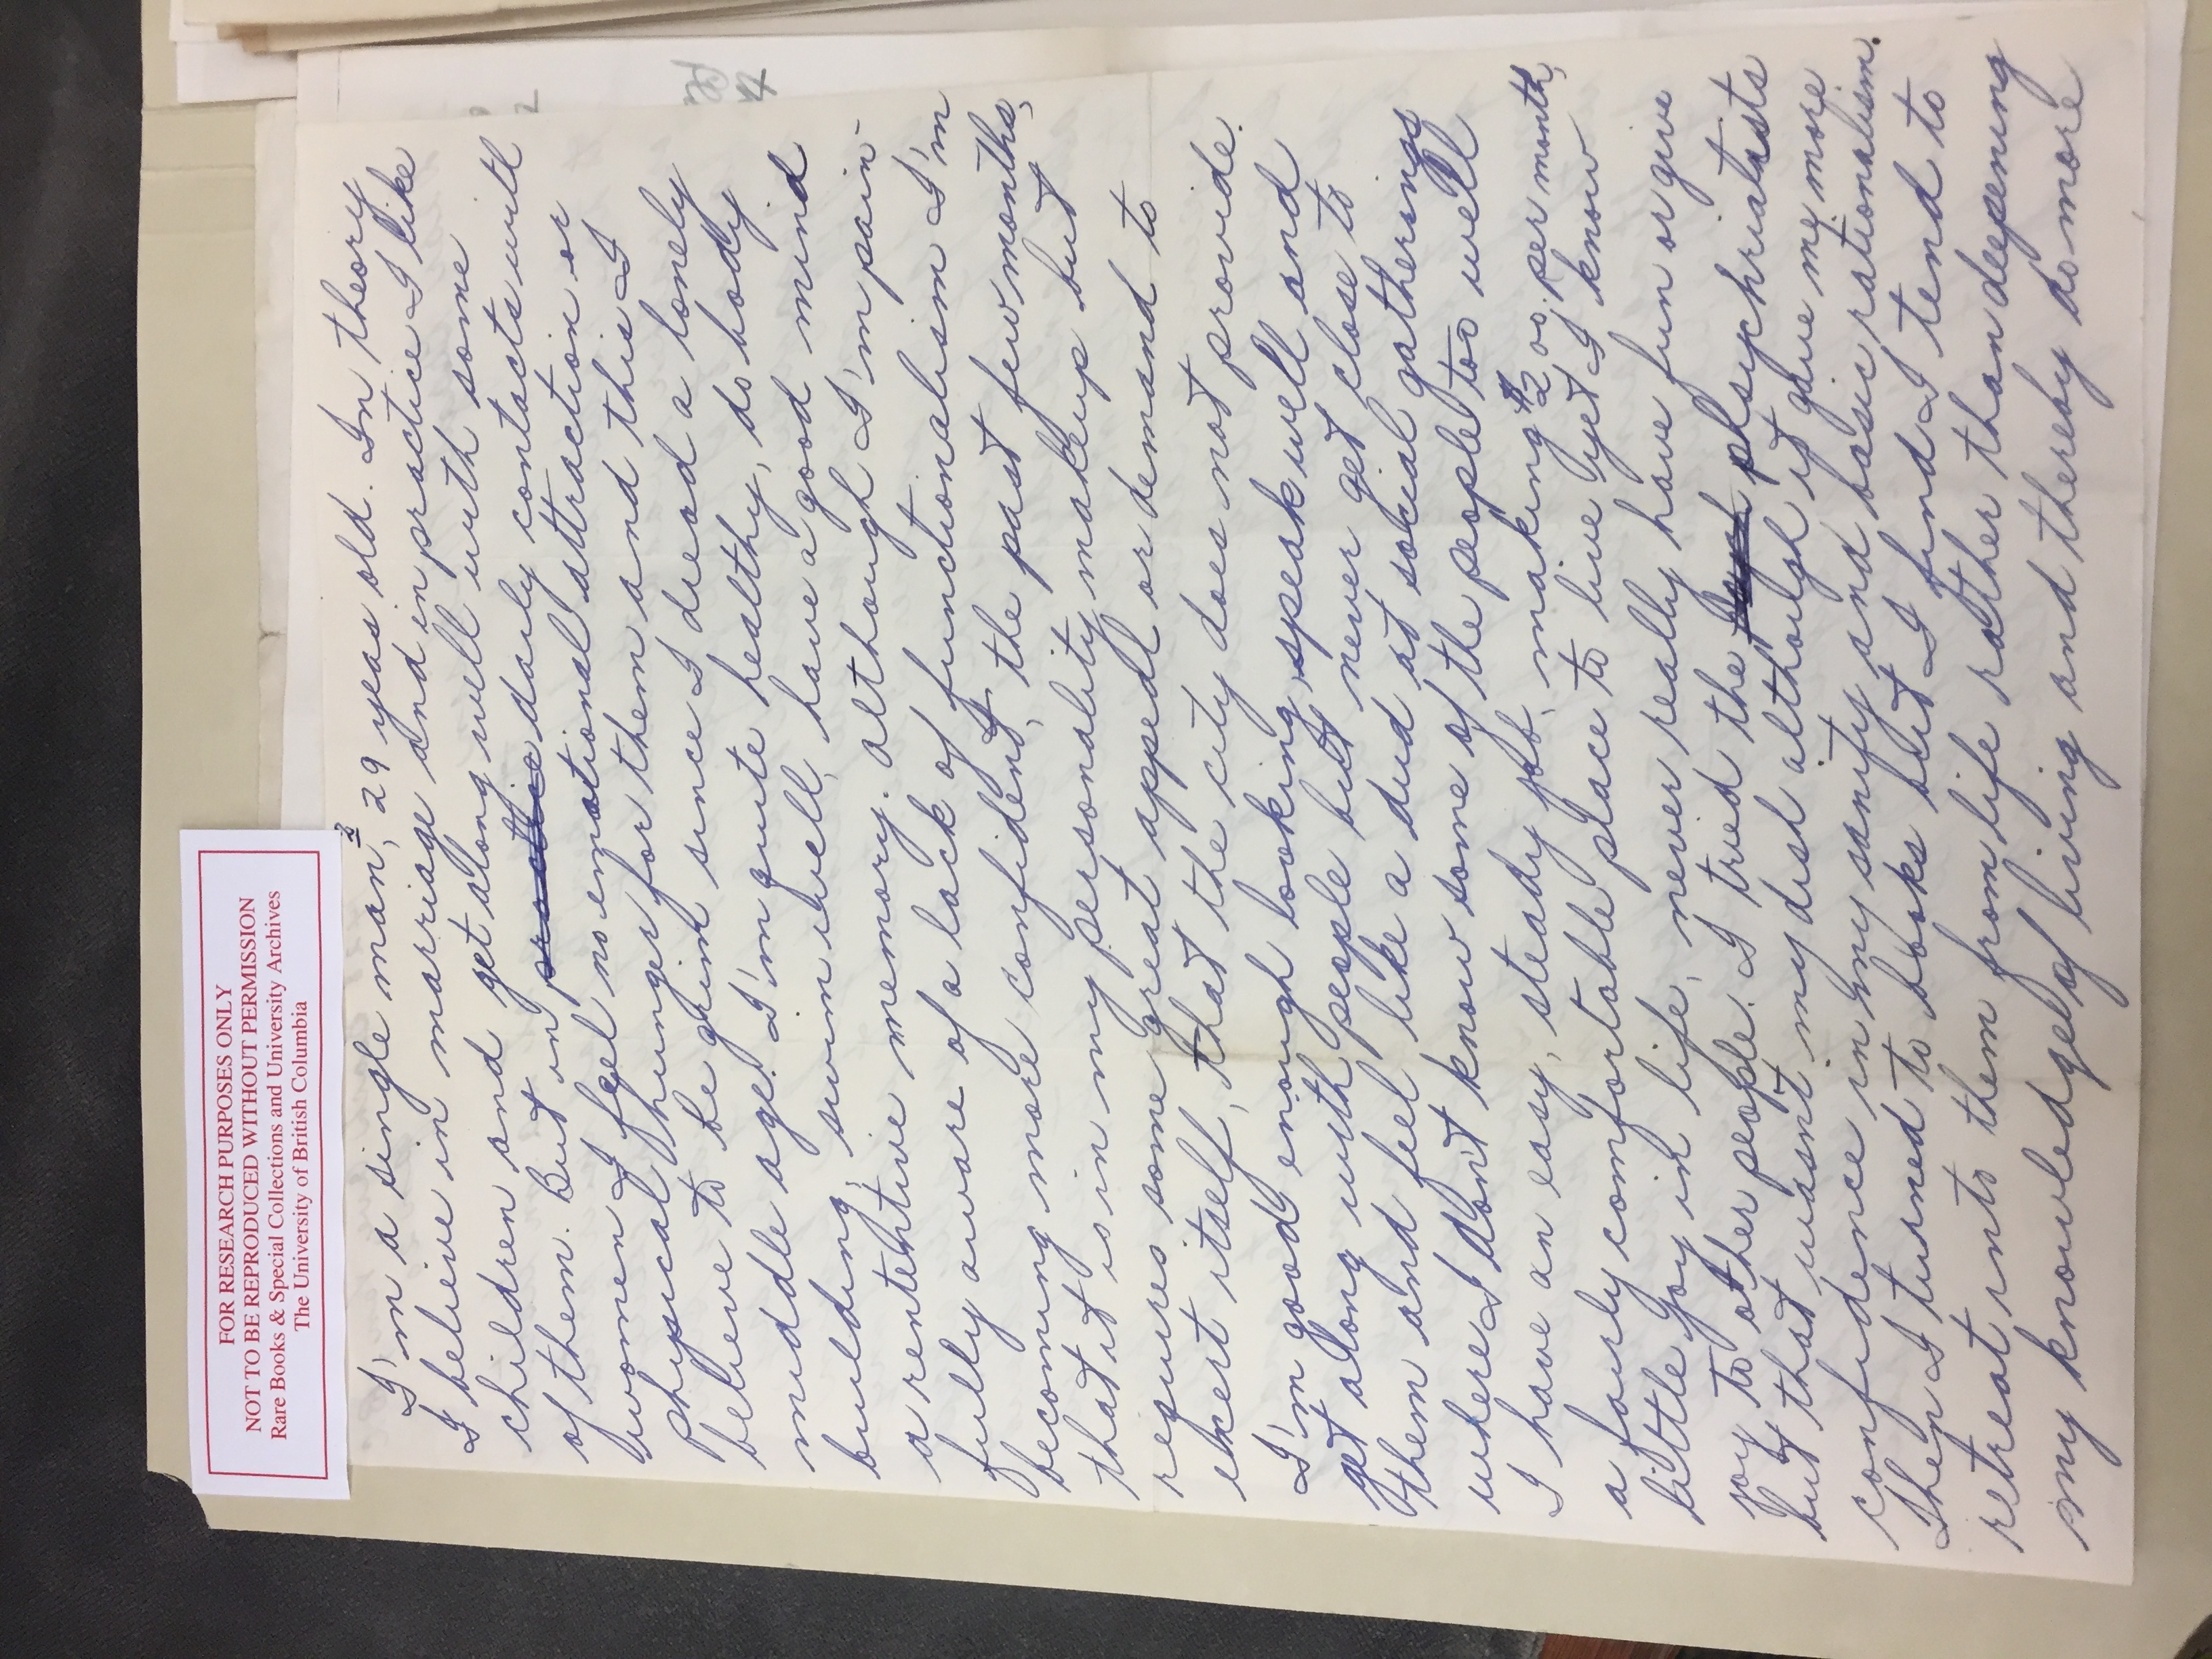 FOR RESEARCH PURPOSES ONLY
NOT TO BE REPRODUCED WITHOUT PERMISSION
Rare Books & Special Collections and University Archives
The University of British Columbia
I'm a single man, 29 years old. In theory
I believe in marriage and in practice I like
children and get along well with some
of them. But in daily contacts with
women I feel no emotional attraction or
physical hunger for them and this I
believe to be grim since I dread a lonely
middle age. I'm quite healthy, do body
building, swim well, have a good mind
a rententive memory. although I'm pain-
fully aware of a lack of functionalism I'm
becoming more confident, the past few months,
that it is in my personality makeup but
requires some great appeal or demand to
excert itself, that the city does not provide.
I'm good enough looking, speak well and
get along with people but never get close to
them and feel like a dud at social gatherings
where I don't know some of the people too well
I have an easy, steady job, making $200. per month,
a fairly comfortable place to live yet I know
little joy in life, never really have fun or give
joy to other people. I tried the phsychriatists
but that wasnt my dish although it gave me more
confidence in my sanity and basic rationalism.
Then I turned to books but I find I tend to
retreat into them from life rather than deepening
my knowledge of living and thereby do more